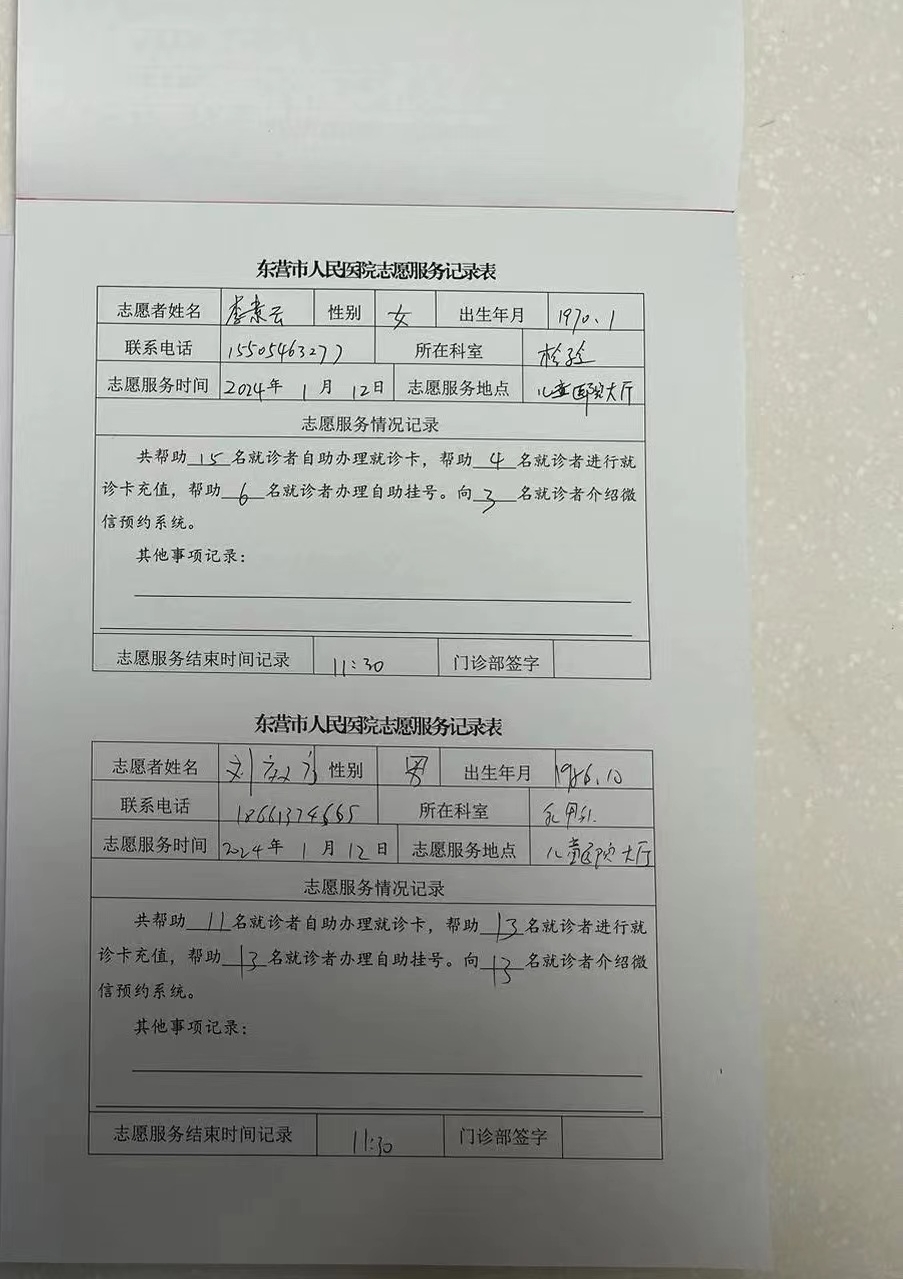 东营市人民医院志愿服务记录表
志愿者姓名 李素云 性别 女 出生年月 1970.1
联系电话 15505463277 所在科室 检验
志愿服务时间 2024年 1月 12日 志愿服务地点 儿童医院大厅
志愿服务情况记录
共帮助15名就诊者自助办理就诊卡，帮助4名就诊者进行就
诊卡充值，帮助6名就诊者办理自助挂号。向3名就诊者介绍微
信预约系统。
其他事项记录：
志愿服务结束时间记录 11:30 门诊部签字
东营市人民医院志愿服务记录表
志愿者姓名 刘 性别 男 出生年月 1986.10
联系电话 18661374665 所在科室
志愿服务时间 2024年 1月 12日 志愿服务地点 儿童医院大厅
志愿服务情况记录
共帮助11名就诊者自助办理就诊卡，帮助13名就诊者进行就
诊卡充值，帮助13名就诊者办理自助挂号。向13名就诊者介绍微
信预约系统。
其他事项记录：
志愿服务结束时间记录 11:30 门诊部签字